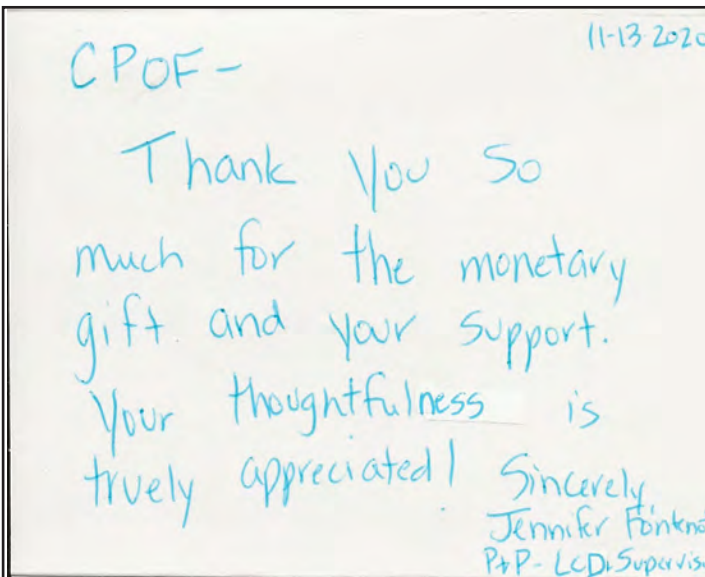 11-13-2020
CPOF-
Thank you so
much for the monetary
gift and your support.
Your thoughtfulness is
truely appreciated! Sincerely,
Jennifer
P+P- LCD